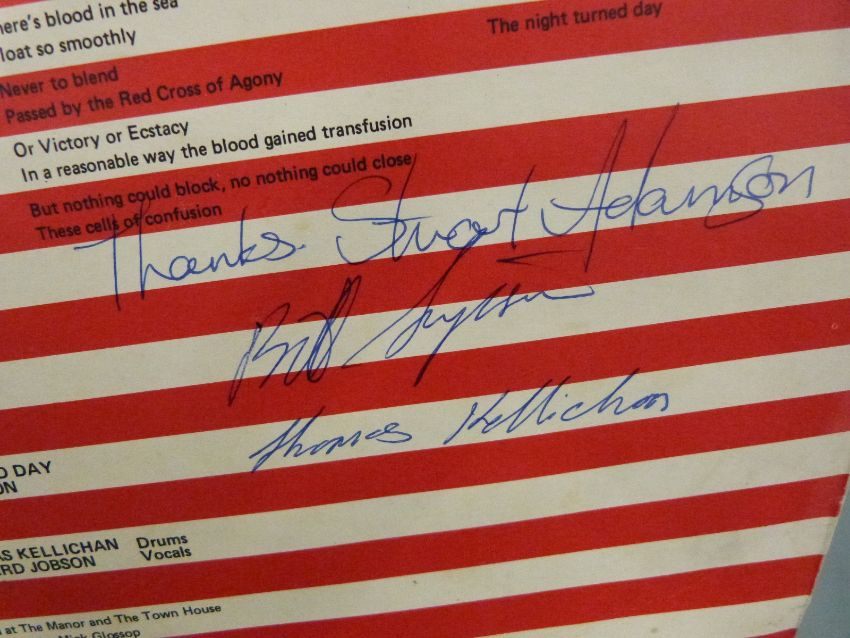 here's blood in the sea
loat so smoothly
The night turned day
Never to blend
Passed by the Red Cross of Agony
Or Victory or Ecstacy
In a reasonable way the blood gained transfusion
But nothing could block, no nothing could close
These cells of confusion
Thanks. Stuart Adamson
Bill Simpson
Thomas Kellichan
O DAY
ON
AS KELLICHAN Drums
ARD JOBSON Vocals
d at The Manor and The Town House
Mick Glossop